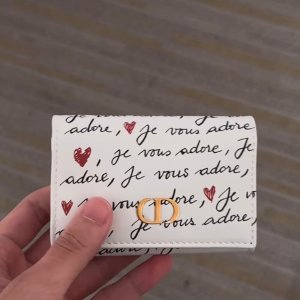 Je vous
adore, ❤ Je vous adore
❤, je vous adore,
adore, Je vous adore,
je vous adore, ❤ Je
adore, Je vous
CD
vous adore
je vous adore,